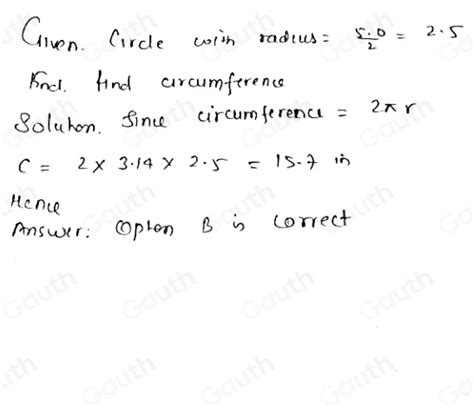 Given. Circle with radius = 5.0/2 = 2.5
Find. find circumference
Solution. Since circumference = 2πr
C = 2 × 3.14 × 2.5 = 15.7 in
Hence
Answer: Option B is correct
Gauth